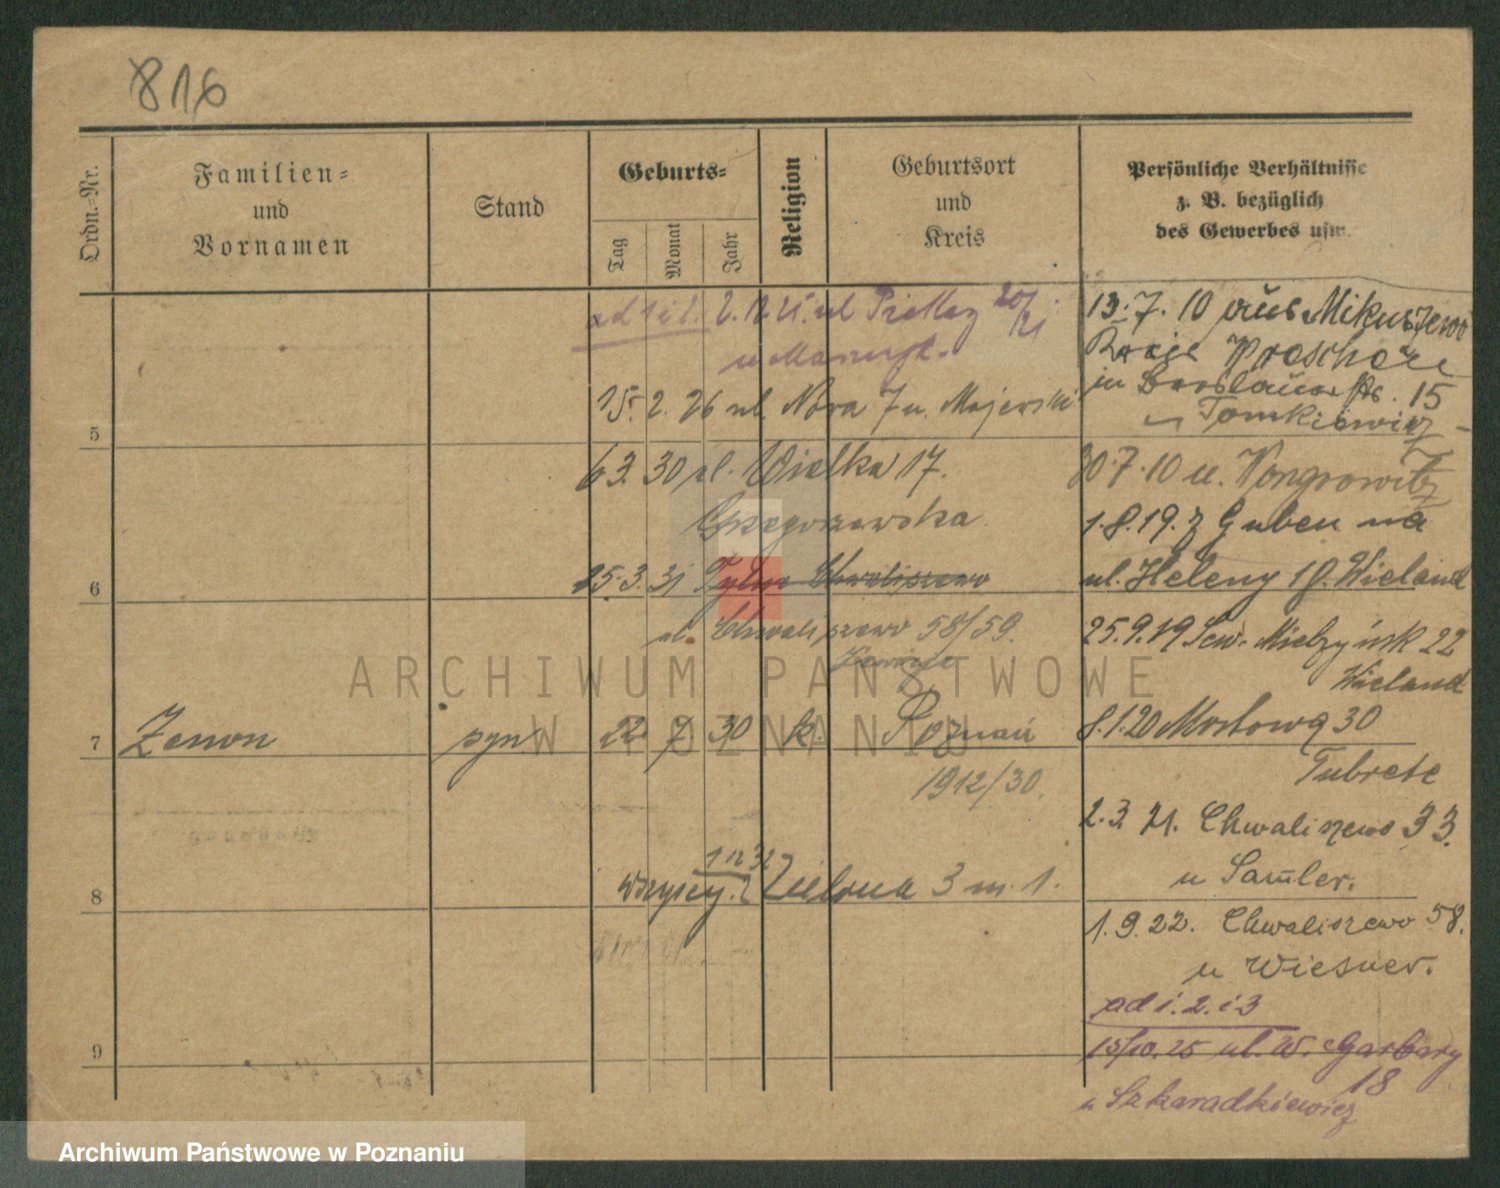 816
Ordn.-Nr.
Familien-
und
Vornamen
Stand
Geburts-
Tag
Monat
Jahr
Religion
Geburtsort
und
Kreis
Persönliche Verhältnisse
z. B. bezüglich
des Gewerbes usw.
ad 1 i 2. 2.12.25. ul 20/21
u
15. 2. 26 ul. Nova 7 u. Majewski
5
6 3. 30 ul. Wielka 17.
Grzegorzewska
15.3.31 Tylne Chwaliszewo
6
ul. Chwaliszewo 58/59.
7
Zenon
syn
22 7 30 k. Poznań
1912/30.
1 12 32
wszyscy. Zielona 3 m. 1.
8
9
13.7.10 aus Mikuszewo
Kreis
in Breslauer str. 15
u Tomkiewicz
30.7.10 u. Wongrowitz
1.8.19. z Guben na
ul. Heleny 10. Wieland
25.9.19 Sew. Mielżyńsk 22
Wieland
8.1.20 Mostowa 30
2.3. 21. Chwaliszewo 33.
u Samler.
1.9.22. Chwaliszewo 58.
u Wiesner.
ad i. 2. i 3
15/10. 25 ul. W. Garbary
18
u Szkaradkiewicz
ARCHIWUM PAŃSTWOWE
W POZNANIU
Archiwum Państwowe w Poznaniu